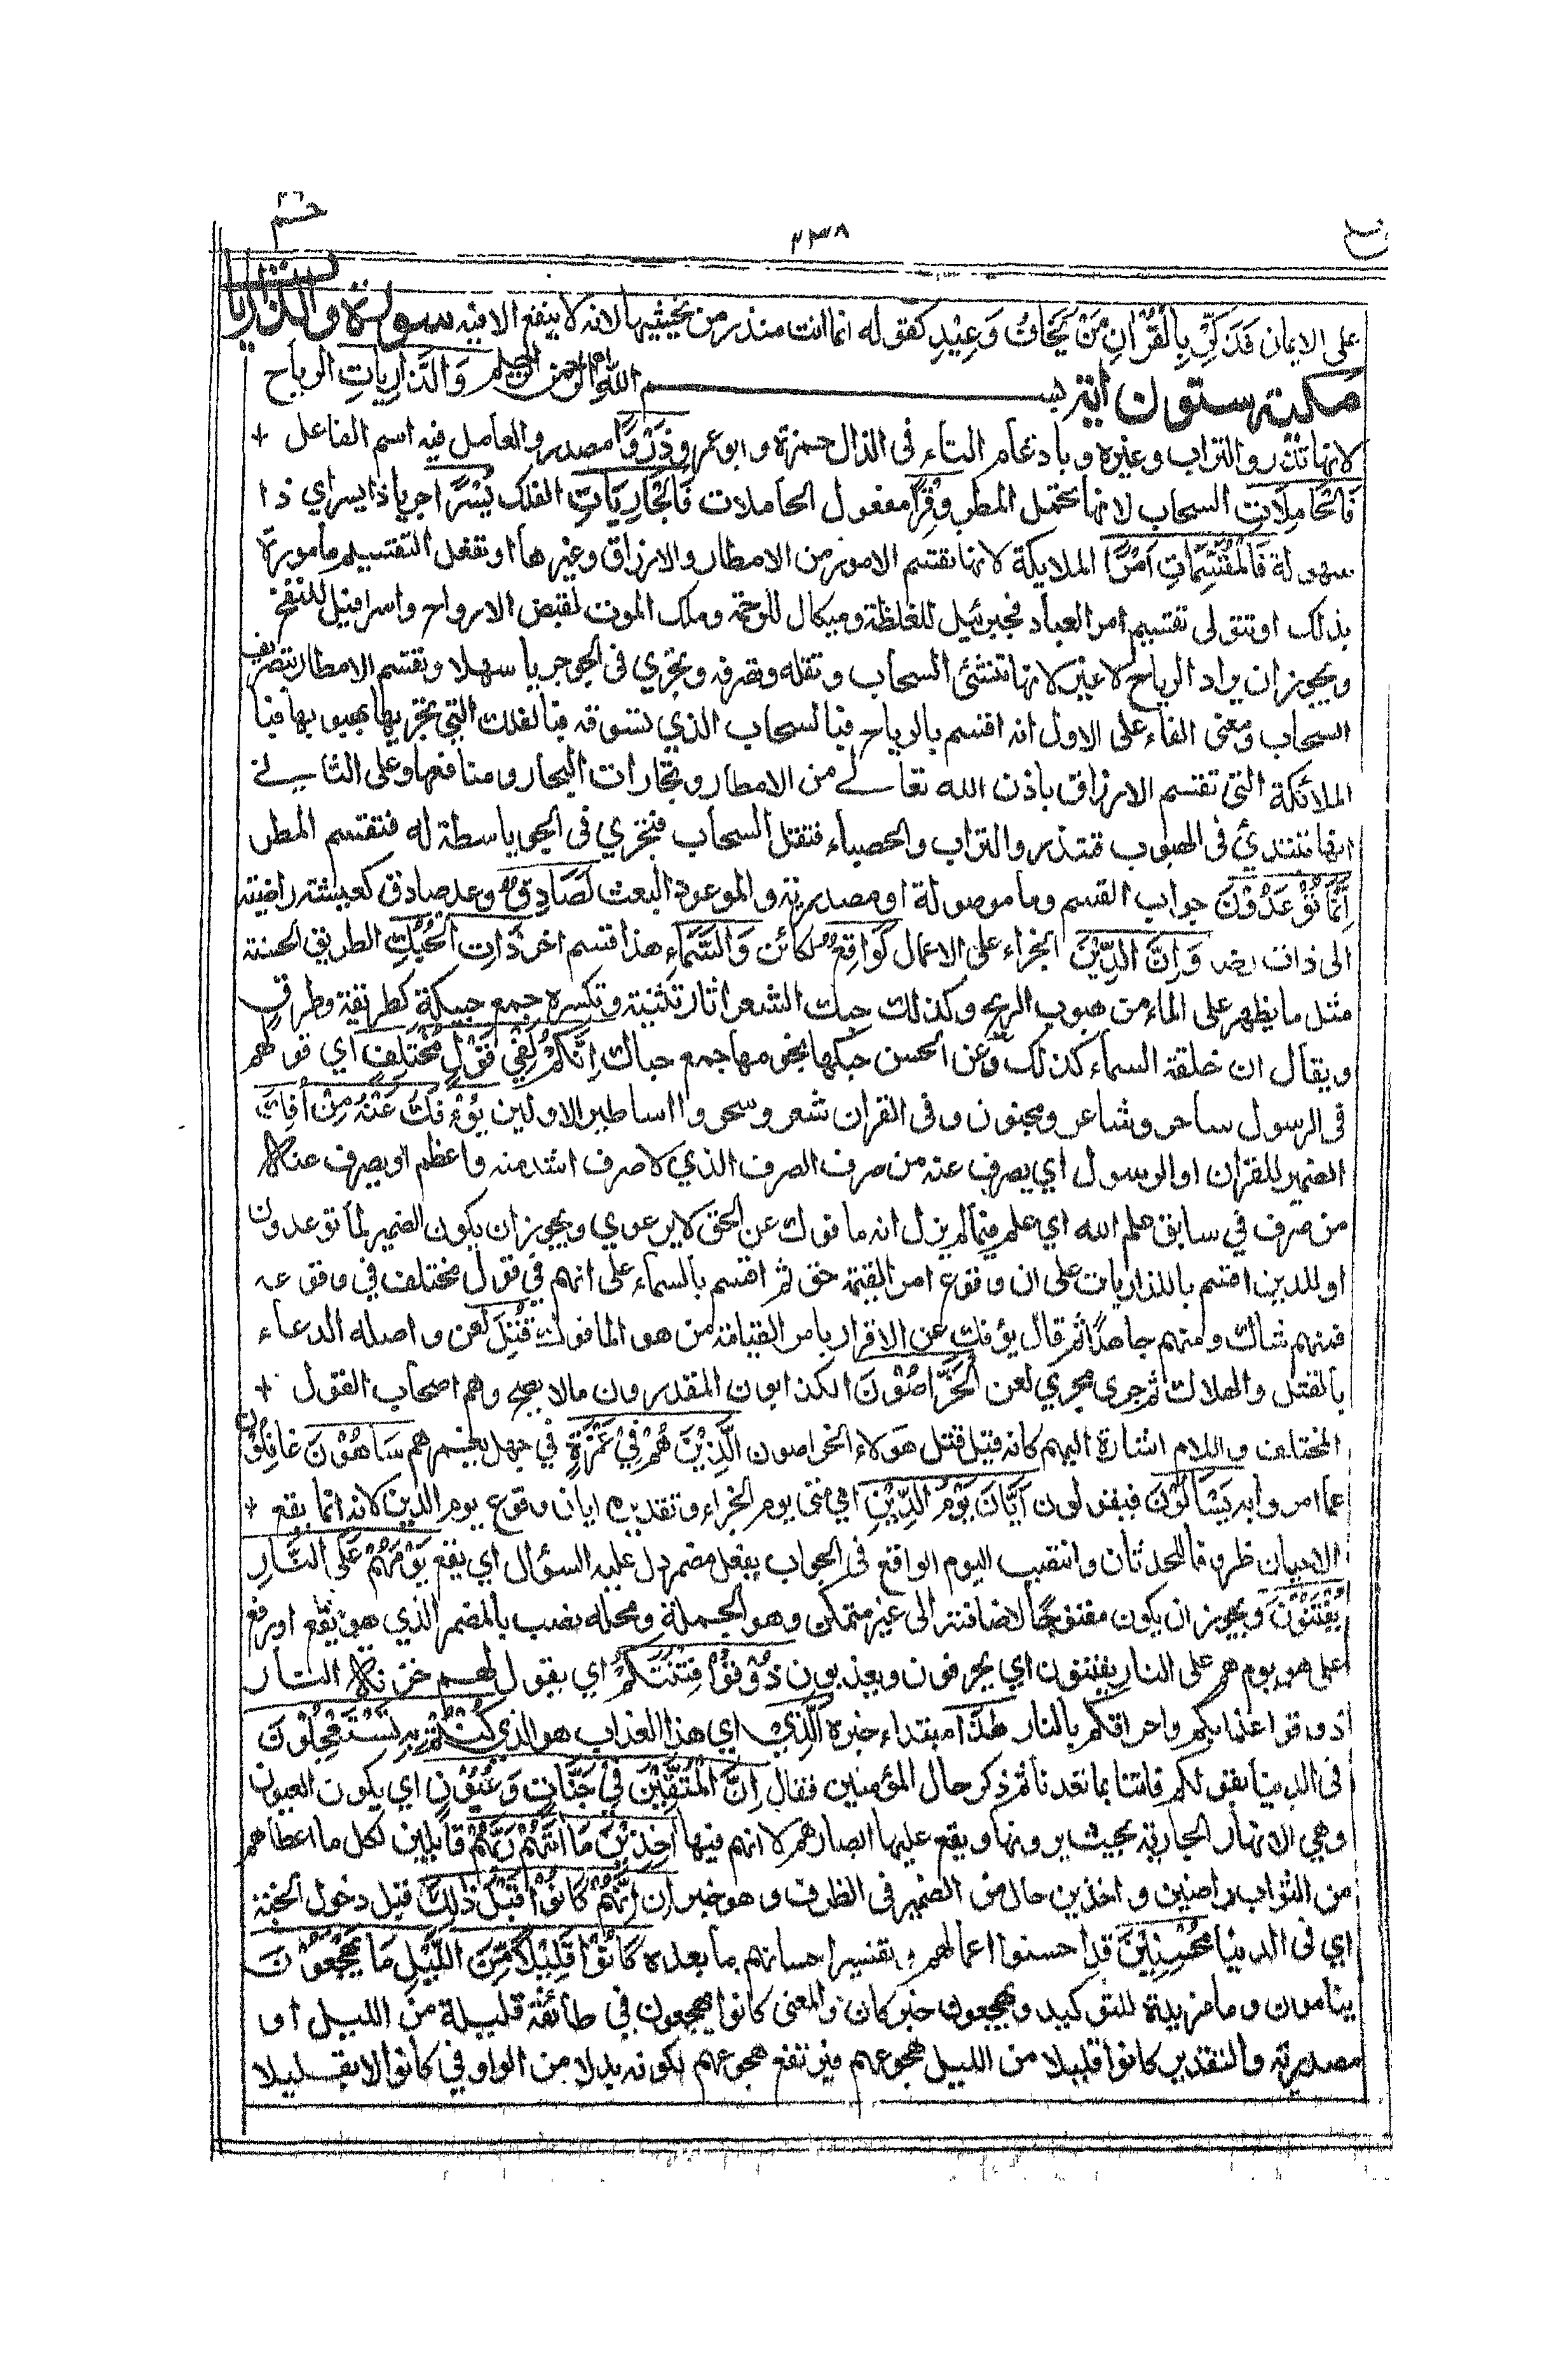 حٰمٓ
٢٣٨
على الايمان فَذَكِّرْ بِالْقُرْاٰنِ مَنْ يَّخَافُ وَعِيْدِ كقوله انما انت منذر من يخشيها لانه لا ينفع الا فيه سورة والذاريات
مكية ستون اية بسم الله الرحمن الرحيم وَالذَّارِيَاتِ الرياح
لانها تذرو التراب وغيره وبادغام التاء فى الذال حمزة وابو عمرو ذَرْوًا مصدر والعامل فيه اسم الفاعل
فَالْحَامِلَاتِ السحاب لانها تحمل المطر وِقْرًا مفعول الحاملات فَالْجَارِيَاتِ الفلك يُسْرًا جريا ذا يسر اي ذا
سهولة فَالْمُقَسِّمَاتِ اَمْرًا الملايكة لانها تقسم الامور من الامطار والارزاق وغيرها او تفعل التقسيم مامورة
بذلك او تتولى تقسيم امر العباد فجبرئيل للغلظة وميكال للرحمة وملك الموت لقبض الارواح واسرافيل للنفخ
ويجوز ان يراد الرياح لا غير لانها تنشئ السحاب وتقله وتصرفه وتجري في الجو جريا سهلا وتقسم الامطار بتصريف
السحاب ومعنى الفاء على الاول انه اقسم بالرياح فبالسحاب الذي تسوقه فبالفلك التي تجريها بهبوبها فبا
الملائكة التي تقسم الارزاق باذن الله تعالى من الامطار وتجارات البحار ومنافعها وعلى الثاني
انها تبتدئ فى الهبوب فتذرو التراب والحصباء فتقل السحاب فتجري فى الجو باسطة له فتقسم المطر
اِنَّمَا تُوْعَدُوْنَ جواب القسم وما موصولة او مصدرية والموعود البعث لَصَادِقٌ وعد صادق كعيشة راضية
الى ذات رضى وَاِنَّ الدِّيْنَ الجزاء على الاعمال لَوَاقِعٌ لكائن وَالسَّمَاءِ هذا قسم اخر ذَاتِ الْحُبُكِ الطريق الحسنة
مثل ما يظهر على الماء من هبوب الريح وكذلك حبك الشعر اثار تثنيته وتكسره جمع حبيكة كطريقة وطرق
ويقال ان خلقة السماء كذلك وعن الحسن حبكها نجومها جمع حباك اِنَّكُمْ لَفِيْ قَوْلٍ مُّخْتَلِفٍ اي قولهم
فى الرسول ساحر وشاعر ومجنون وفى القران شعر وسحر واساطير الاولين يُؤْفَكُ عَنْهُ مَنْ اُفِكَ
الضمير للقران او الرسول اي يصرف عنه من صرف الصرف الذي لا صرف اشد منه واعظم او يصرف عنه
من صرف في سابق علم الله اي علم فيما لم يزل انه مافوك عن الحق لا يرعوي ويجوز ان يكون الضمير لما توعدون
او للدين اقسم بالذاريات على ان وقوع امر القيمة حق ثم اقسم بالسماء على انهم في قول مختلف في وقوعه
فمنهم شاك ومنهم جاحد ثم قال يؤفك عن الاقرار بامر القيامة من هو المافوك قُتِلَ لعن واصله الدعاء
بالقتل والهلاك ثم جرى مجرى لعن الْخَرَّاصُوْنَ الكذابون المقدرون مالا يصح وهم اصحاب القول
المختلف واللام اشارة اليهم كانه قيل قتل هولاء الخراصون الَّذِيْنَ هُمْ فِيْ غَمْرَةٍ في جهل يغمرهم سَاهُوْنَ غافلون
عما امروا به يَسْئَلُوْنَ فيقولون اَيَّانَ يَوْمُ الدِّيْنِ اي متى يوم الجزاء وتقديره ايان وقوع يوم الدين لانه انما يقع
الاحيان ظروفا للحدثان وانتصب اليوم الواقع فى الجواب بفعل مضمر دل عليه السؤال اي يقع يَوْمَ هُمْ عَلَى النَّارِ
يُفْتَنُوْنَ ويجوز ان يكون مفتوحا لاضافته الى غير متمكن وهو الجملة ومحله نصب بالمضمر الذي هو يقع او رفع
على هو يوم هم على النار يفتنون اي يحرقون ويعذبون ذُوْقُوْا فِتْنَتَكُمْ اي يقول لهم خزنة النار
ذوقوا عذابكم واحراقكم بالنار هٰذَا مبتداء خبره الَّذِيْ اي هذا العذاب هو الذي كُنْتُمْ بِهٖ تَسْتَعْجِلُوْنَ
فى الدنيا بقولكم فاتنا بما تعدنا ثم ذكر حال المؤمنين فقال اِنَّ الْمُتَّقِيْنَ فِيْ جَنّٰتٍ وَّعُيُوْنٍ اي يكون العيون
وهي الانهار الجارية بحيث يرونها ويقع عليها ابصارهم لا انهم فيها اٰخِذِيْنَ مَا اٰتٰهُمْ رَبُّهُمْ قابلين لكل ما اعطاهم
من الثواب راضين واخذين حال من الضمير فى الظرف وهو خبر ان اِنَّهُمْ كَانُوْا قَبْلَ ذٰلِكَ قبل دخول الجنة
اي فى الدنيا مُحْسِنِيْنَ قد احسنوا اعمالهم وتفسير احسانهم ما بعده كَانُوْا قَلِيْلًا مِّنَ اللَّيْلِ مَا يَهْجَعُوْنَ
ينامون وما مزيدة للتوكيد ويهجعون خبر كان والمعنى كانوا يهجعون في طائفة قليلة من الليل او
مصدرية والتقدير كانوا قليلا من الليل هجوعهم فيرتفع هجوعهم لكونه بدلا من الواو في كانوا لا بقليلا